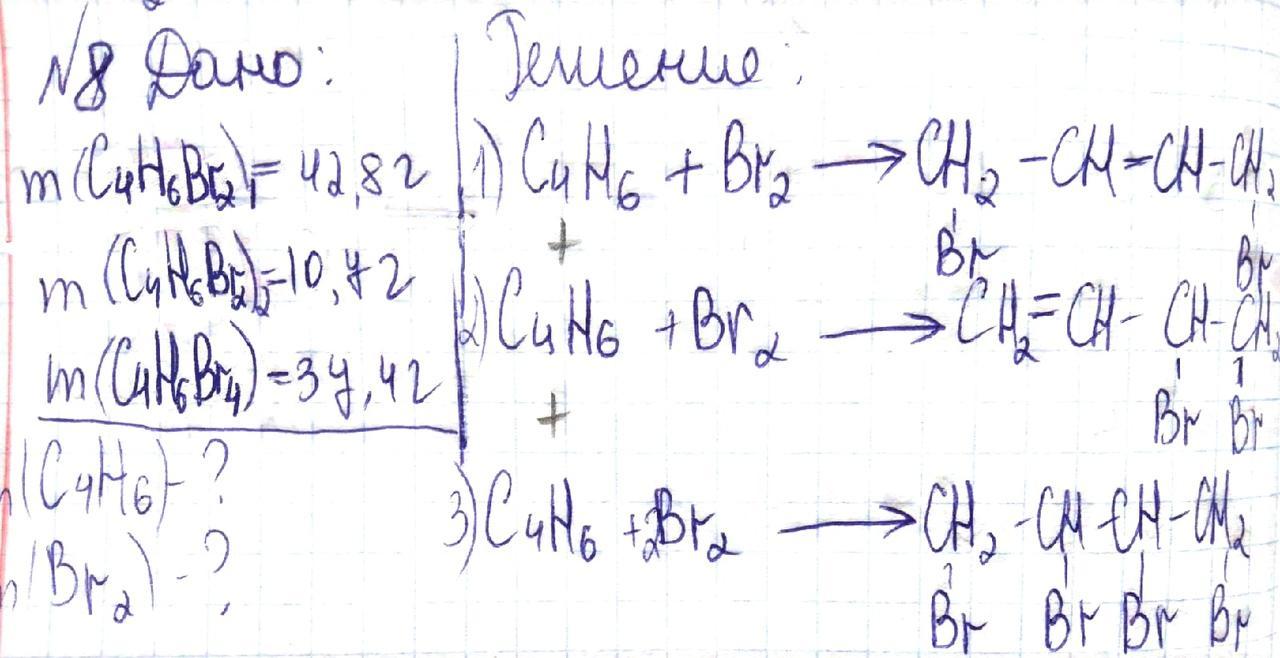 №8 Дано:
m(C₄H₆Br₂)₁=42,8г
m(C₄H₆Br₂)₂=10,7г
m(C₄H₆Br₄)=37,4г
n(C₄H₆)-?
n(Br₂)-?
Решение:
1) C₄H₆ + Br₂ → CH₂-CH=CH-CH₂
Br Br
+
2) C₄H₆ + Br₂ → CH₂=CH-CH-CH₂
Br Br
+
3) C₄H₆ + 2Br₂ → CH₂-CH-CH-CH₂
Br Br Br Br